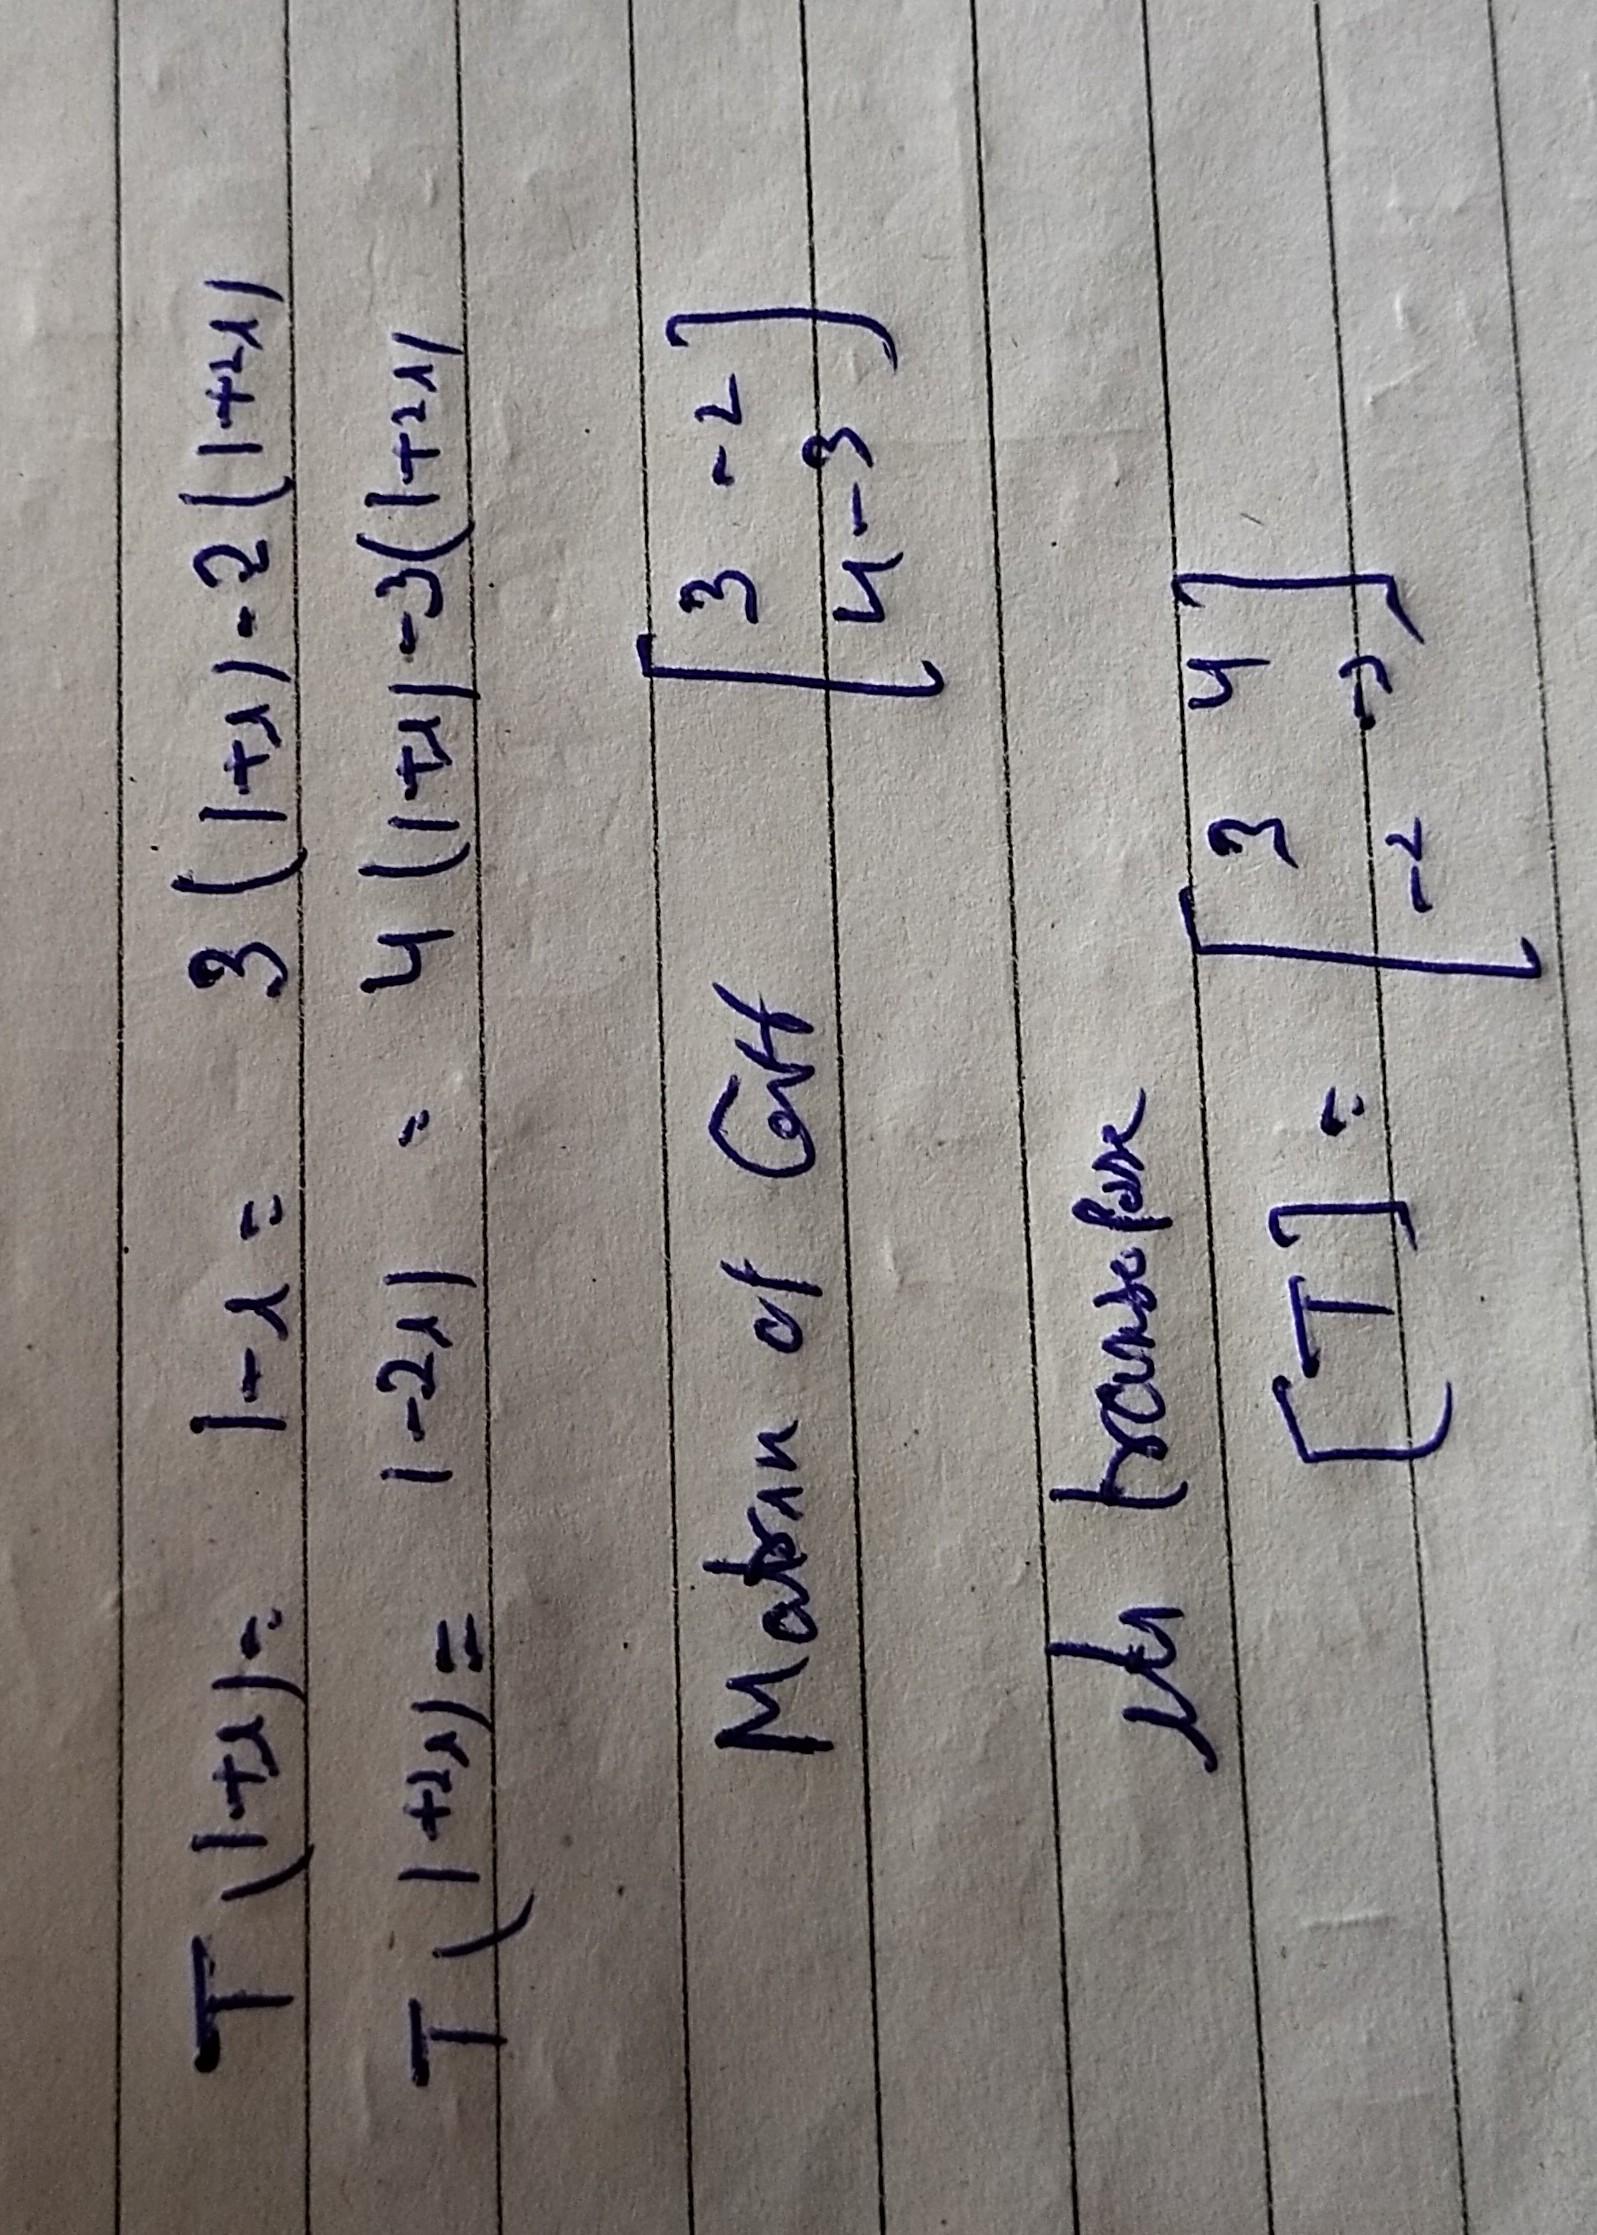 T(1+i) = 1-i = 3(1+i)-2(1+2i)
T(1+2i) = 1-2i) = 4(1+i)-3(1+2i)
Matrix of Coff [3 -2
4 -3]
its transpose
[T] = [3 4
-2 -3]